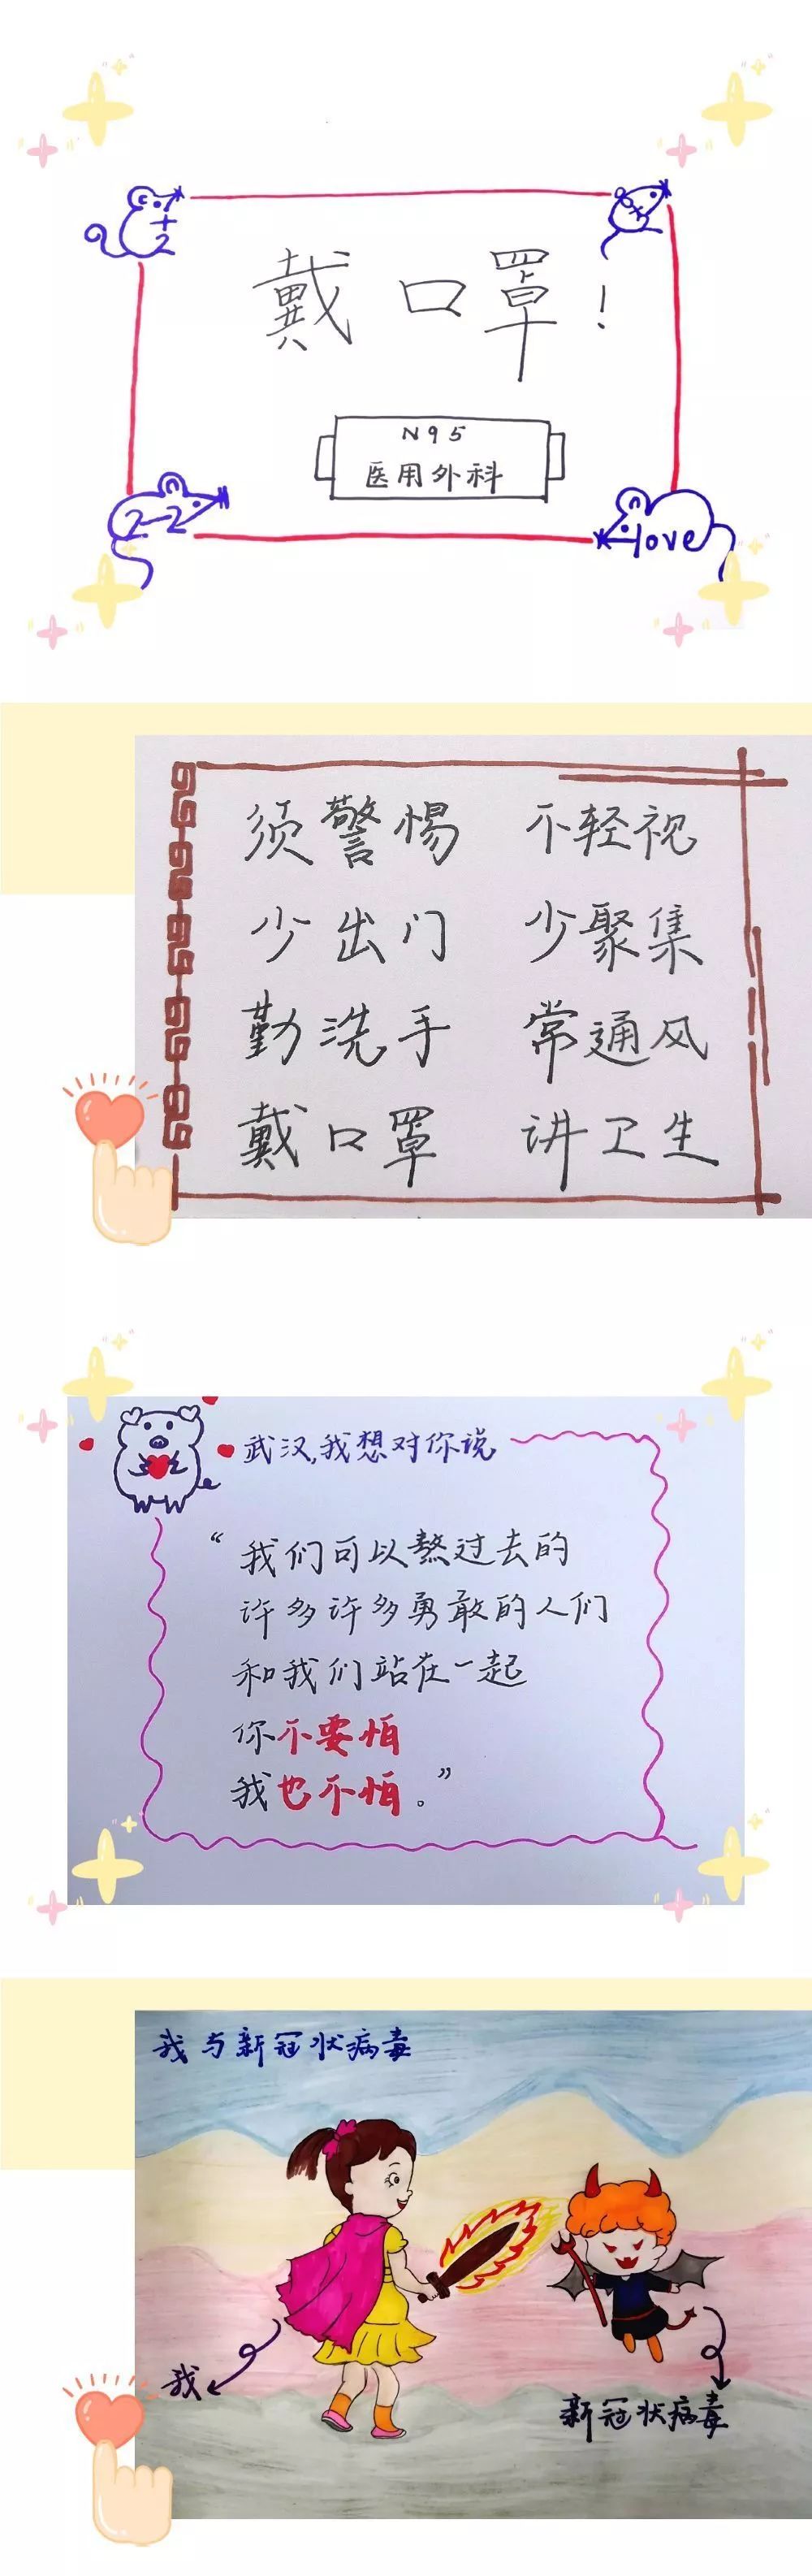 戴口罩!
N95
医用外科
love
须警惕 不轻视
少出门 少聚集
勤洗手 常通风
戴口罩 讲卫生
武汉,我想对你说
“我们可以熬过去的
许多许多勇敢的人们
和我们站在一起
你不要怕
我也不怕。”
我与新冠状病毒
我
新冠状病毒